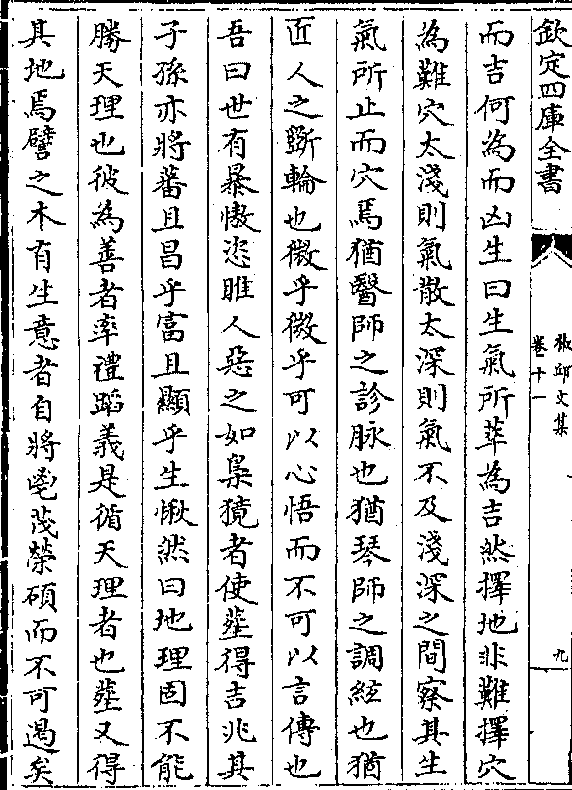 欽定四庫全書
椒邱文集
卷十一
九
而吉何為而凶生曰生氣所萃為吉然擇地非難擇穴
為難穴太淺則氣散太深則氣不及淺深之間察其生
氣所止而穴焉猶醫師之診脉也猶琴師之調絃也猶
匠人之斵輪也微乎微乎可以心悟而不可以言傳也
吾曰世有暴慠恣睢人惡之如梟獍者使塟得吉兆其
子孫亦將蕃且昌乎富且顯乎生愀然曰地理固不能
勝天理也彼為善者率禮蹈義是循天理者也塟又得
其地焉譬之木有生意者自將鬯茂榮碩而不可遏矣